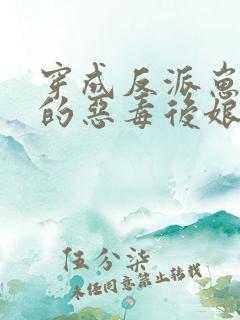 穿成反派崽
的惡毒後娘
伍分柒
未经同意禁止转载